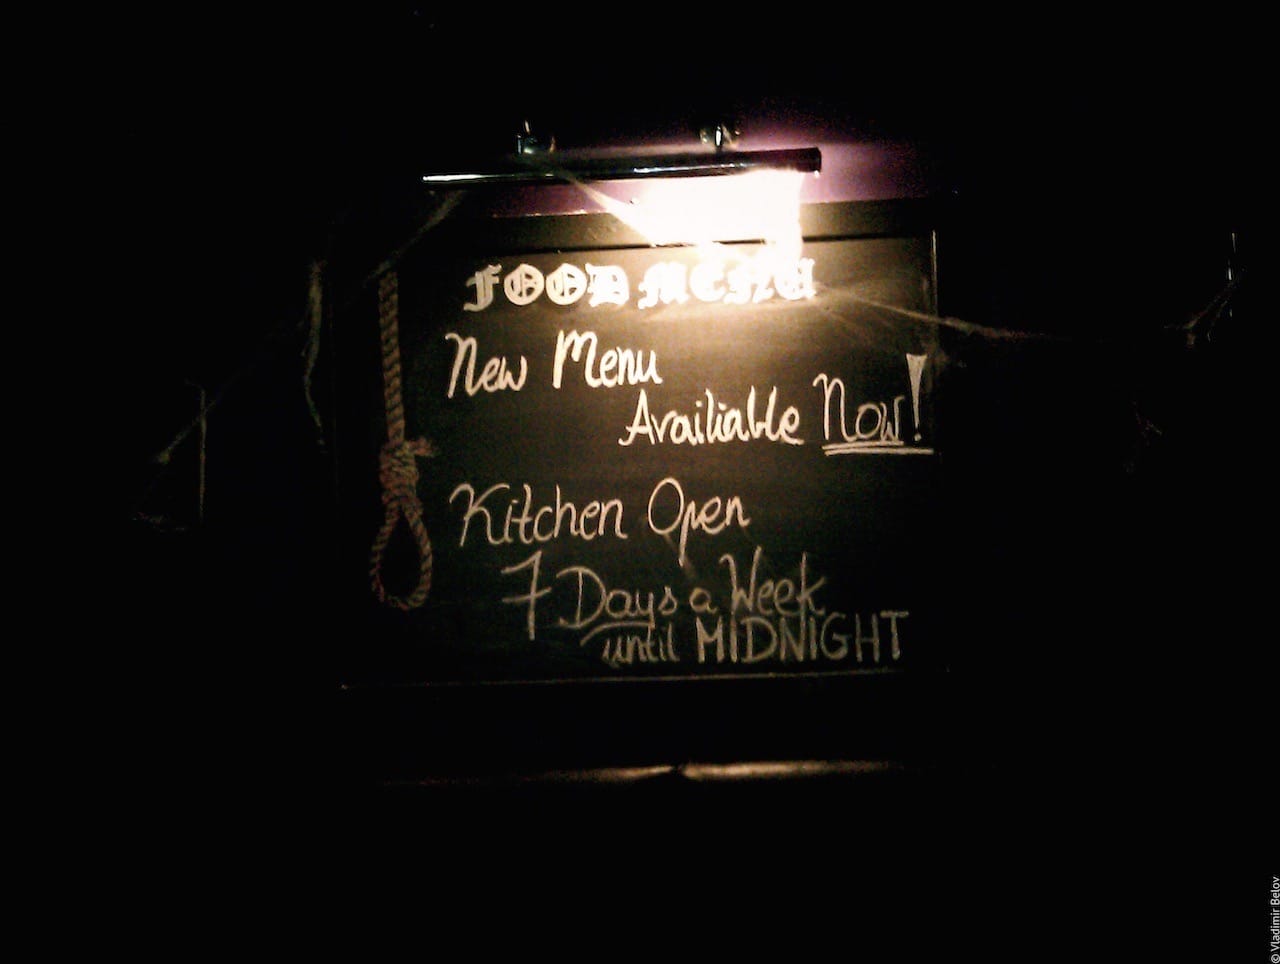 FOOD MENU
New Menu
Availiable Now!
Kitchen Open
7 Days a Week
until MIDNIGHT
© Vladimir Belov